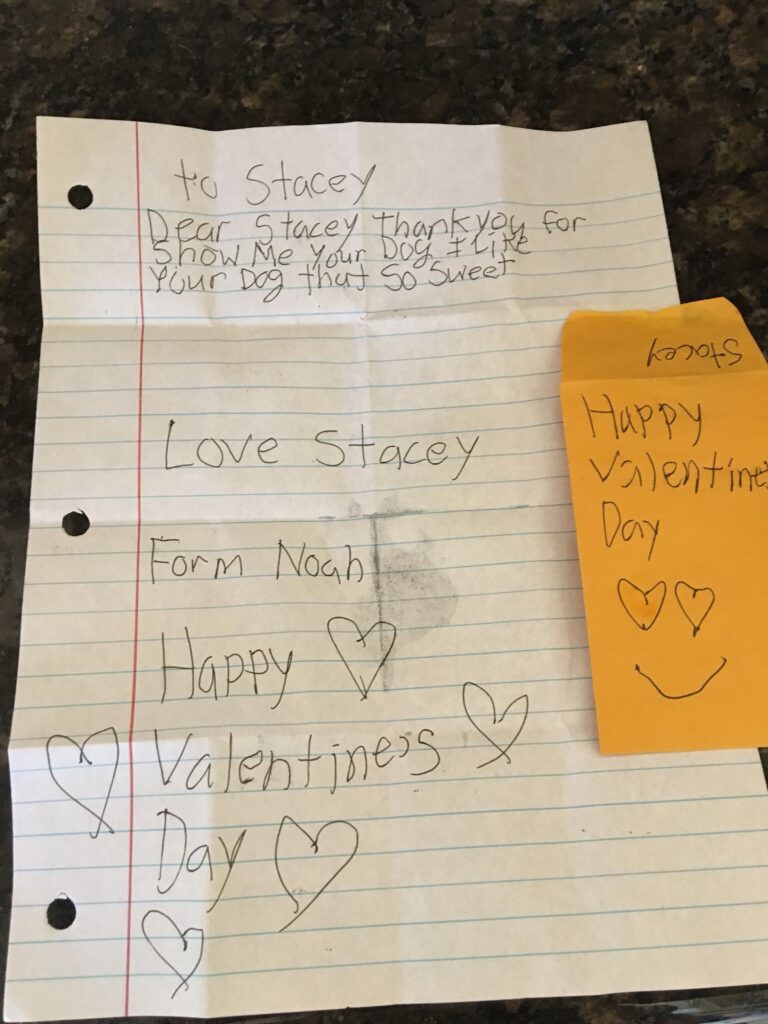 to Stacey
Dear Stacey thank you for
Show Me Your Dog I Like
Your Dog that So Sweet
Love Stacey
Form Noah
Happy
Valentine's
Day
Stacey
Happy
Valentines
Day